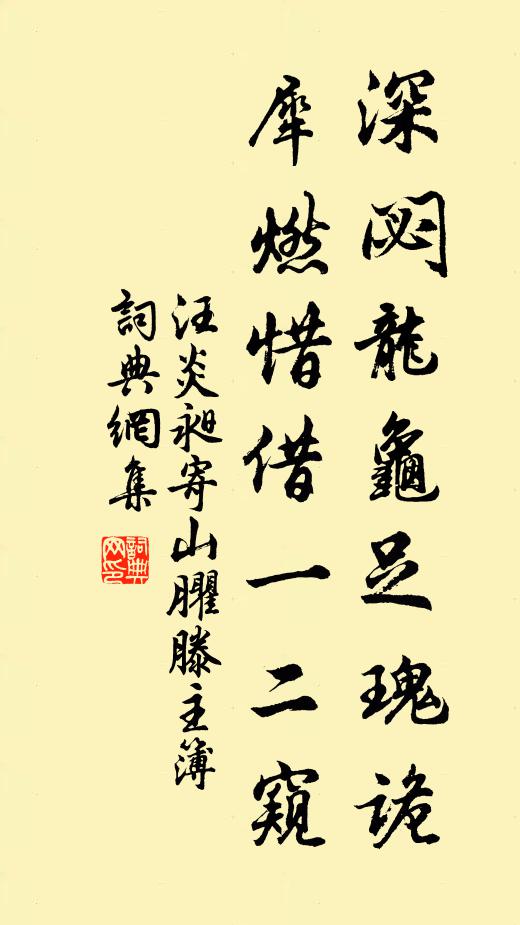 深閟龍龜足瑰詭
犀燃惜借一二窺
汪炎昶寄山臞滕主簿
詞典網集
詞典網印